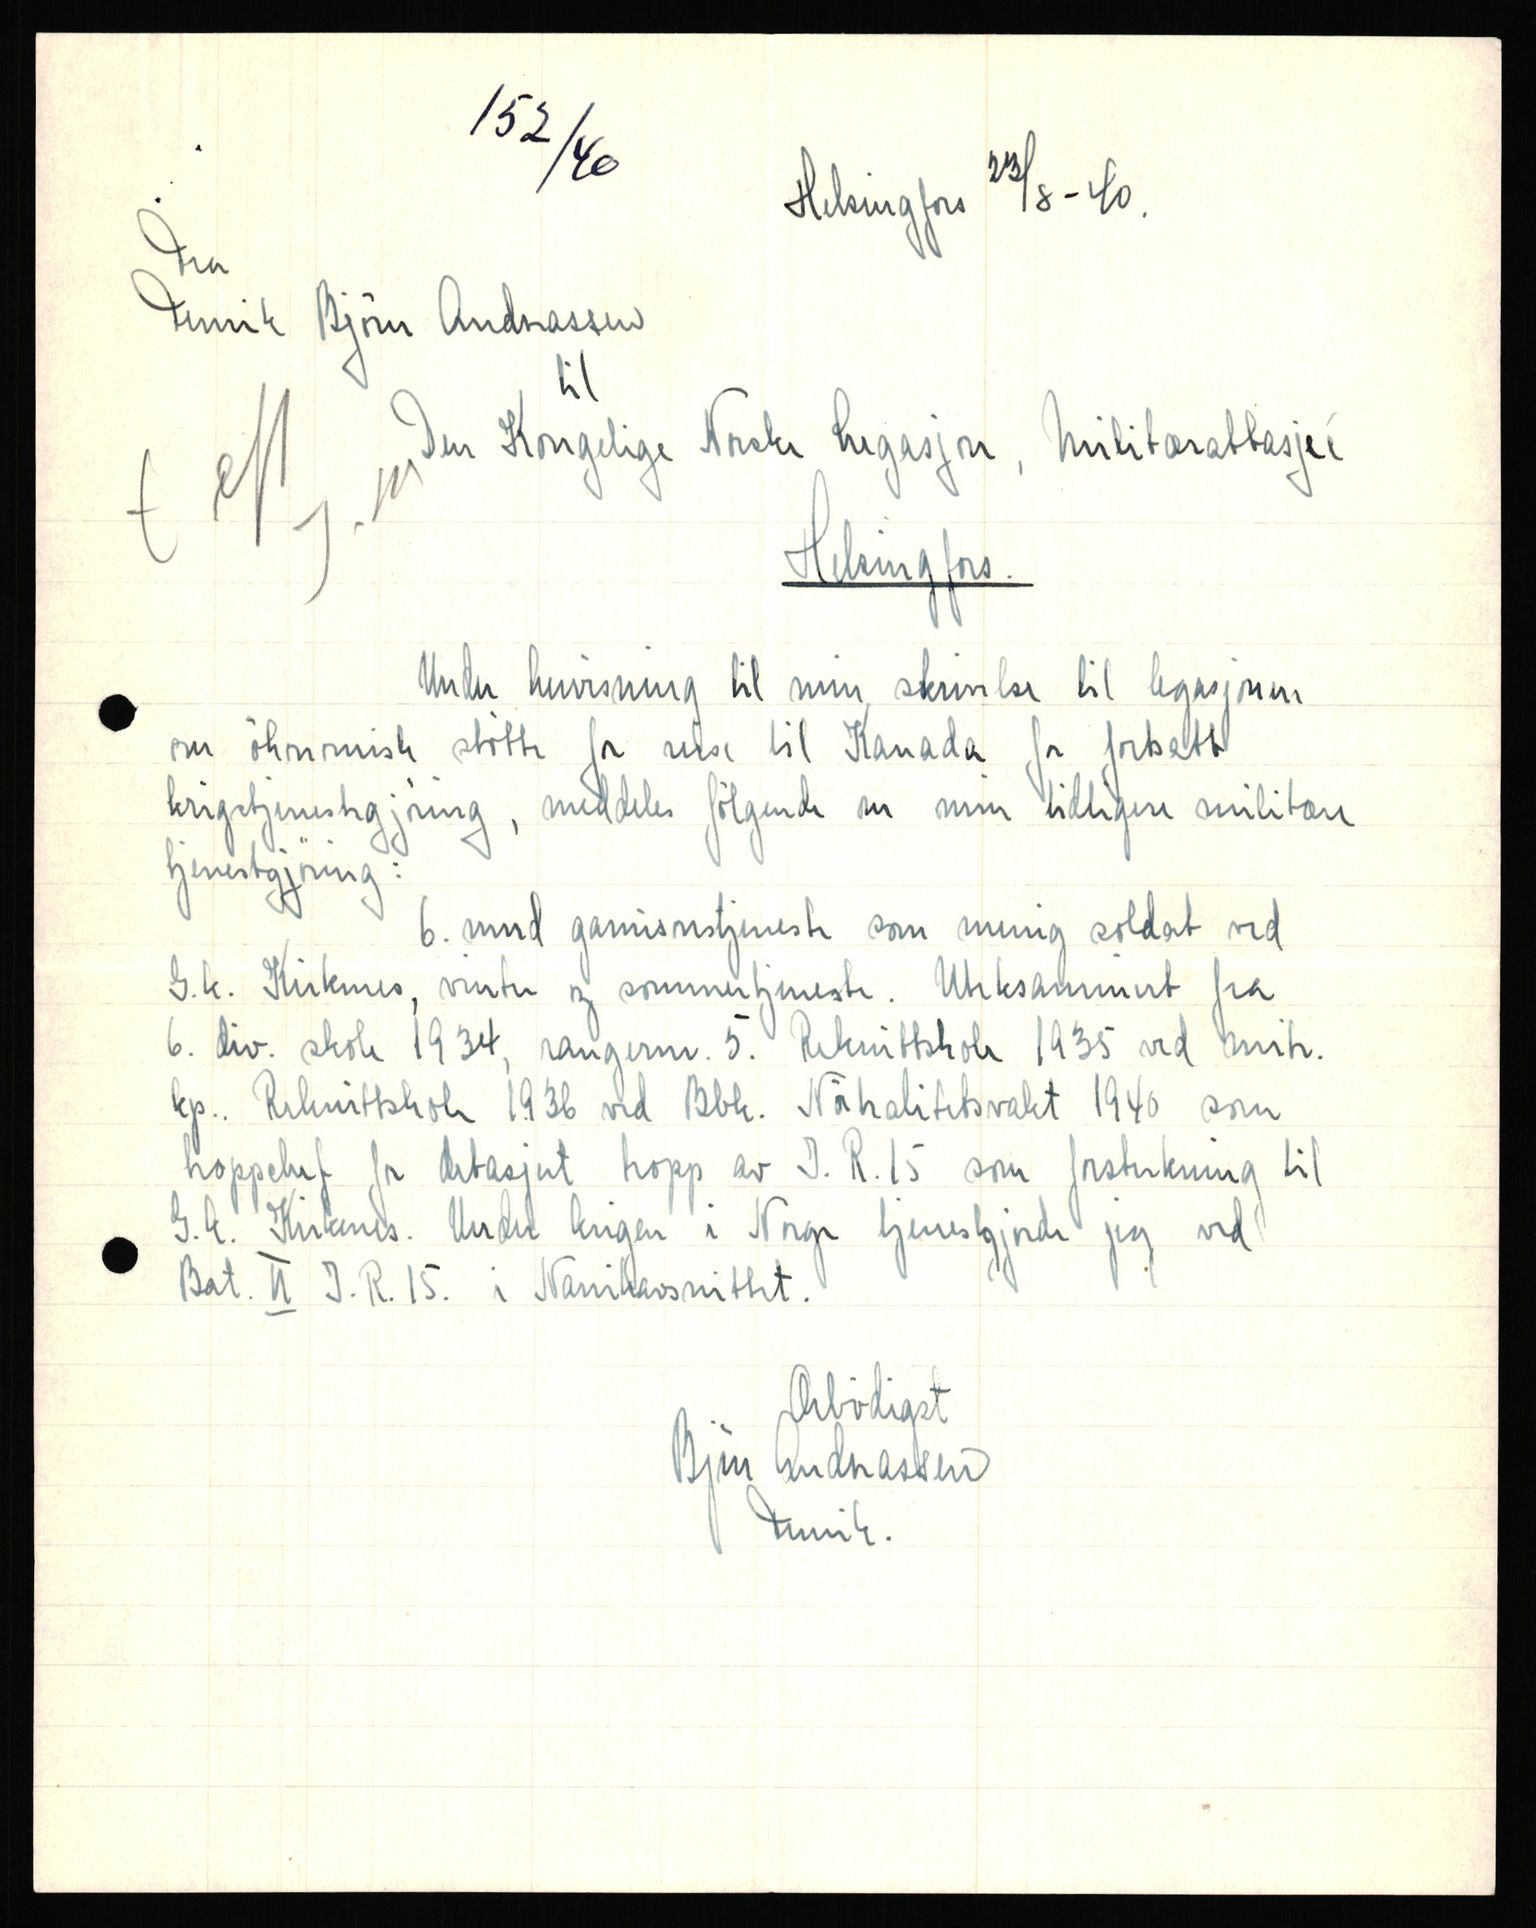 152/40
Helsingfors 23/8-40.
Fra
Fenrik Björn Andreassen
til
Den Kongelige Norske Legasjon, Militærattasjeé
Helsingfors.
Under henvisning til min skrivelse til legasjonen
om ökonomisk stötte for reise til Kanada for fortsatt
krigstjenestegjöring, meddeles fölgende om min tidligere militære
tjenestgjöring:
6. mnd garnisonstjeneste som menig soldat ved
G.k. Kirkenes, vinter og sommertjeneste. Uteksaminert fra
6. div. skole 1934, rangernr. 5. Rekruttskole 1935 ved mitr.
kp.. Rekruttskole 1936 ved Bbk. Nöitralitetsvakt 1940 som
troppchef for detasjert tropp av I.R.15 som forsterkning til
G.k. Kirkenes. Under krigen i Norge tjenestgjorde jeg ved
Bat. II I.R.15. i Narvikavsnittet.
Ærbödigst
Björn Andreassen
Fenrik.